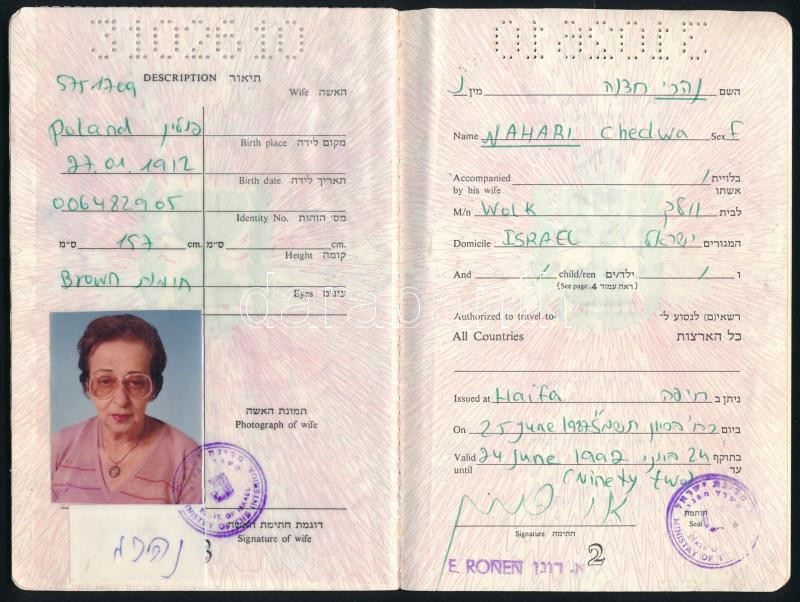 3102610
5751709
DESCRIPTION תיאור
Wife האשה
Poland פולין
Birth place מקום לידה
27.01.1912
Birth date תאריך לידה
006482905
Identity No. מס׳ הזהות
ס״מ 157 cm. ס״מ cm.
Height קומה
Brown חומות
Eyes עינים
תמונת האשה
Photograph of wife
דוגמת חתימת האשה
Signature of wife
נהרי
3
השם נהרי חדוה מין נ
Name NAHARI Chedwa Sex F
Accompanied by his wife / בלויית אשתו
M/n Wolk וולק לבית
Domicile ISRAEL ישראל המגורים
And / child/ren ילד/ים / ו
(See page 4 ראה עמוד)
Authorized to travel to- רשאי(ם) לנסוע ל-
All Countries כל הארצות
Issued at Haifa חיפה ניתן ב
On 25 June 1987 ביום
Valid until 24 June 1992 24 ביוני בתוקף עד
(Ninety two)
Signature חתימה
חותמת
Seal
מדינת ישראל
STATE OF ISRAEL
MINISTRY OF THE INTERIOR
E. RONEN א. רונן
2
darabanth